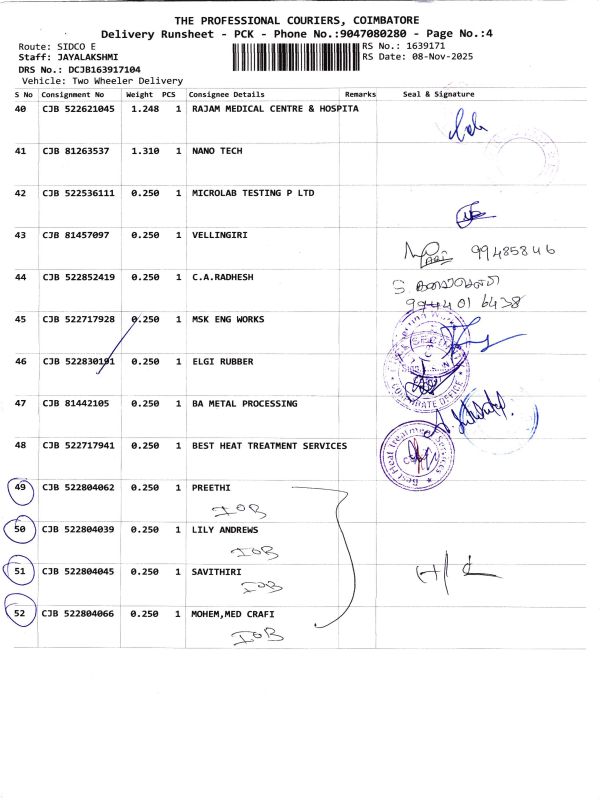 THE PROFESSIONAL COURIERS, COIMBATORE
Delivery Runsheet - PCK - Phone No.:9047080280 - Page No.:4
Route: SIDCO E RS No.: 1639171
Staff: JAYALAKSHMI RS Date: 08-Nov-2025
DRS No.: DCJB163917104
Vehicle: Two Wheeler Delivery
S No Consignment No Weight PCS Consignee Details Remarks Seal & Signature
40 CJB 522621045 1.248 1 RAJAM MEDICAL CENTRE & HOSPITA
41 CJB 81263537 1.310 1 NANO TECH
42 CJB 522536111 0.250 1 MICROLAB TESTING P LTD
43 CJB 81457097 0.250 1 VELLINGIRI
99485846
44 CJB 522852419 0.250 1 C.A.RADHESH
99440 16438
45 CJB 522717928 0.250 1 MSK ENG WORKS
46 CJB 522830191 0.250 1 ELGI RUBBER
CORPORATE OFFICE
47 CJB 81442105 0.250 1 BA METAL PROCESSING
48 CJB 522717941 0.250 1 BEST HEAT TREATMENT SERVICES
Best Heat Treatment Services
49 CJB 522804062 0.250 1 PREETHI
IOB
50 CJB 522804039 0.250 1 LILY ANDREWS
IOB
51 CJB 522804045 0.250 1 SAVITHIRI
IOB
52 CJB 522804066 0.250 1 MOHEM,MED CRAFI
IOB